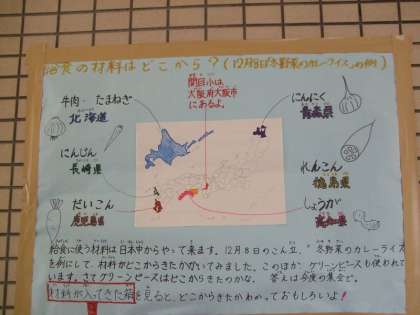 給食の材料はどこから?(12月8日「冬野菜のカレーライス」の例)
関目小は
大阪府大阪市
にあるよ。
牛肉・たまねぎ
北海道
にんじん
長崎県
だいこん
鹿児島県
にんにく
青森県
れんこん
徳島県
しょうが
高知県
給食に使う材料は日本中からやって来ます。12月8日のこん立、"冬野菜のカレーライス"
を例にして、材料がどこからきたかかいてみました。このほか グリーンピースも使われて
います。さてグリーンピースはどこからきたのかな。答えは今度の集会で。
材料が入ってきた箱を見ると、どこからきたかわかっておもしろいよ!